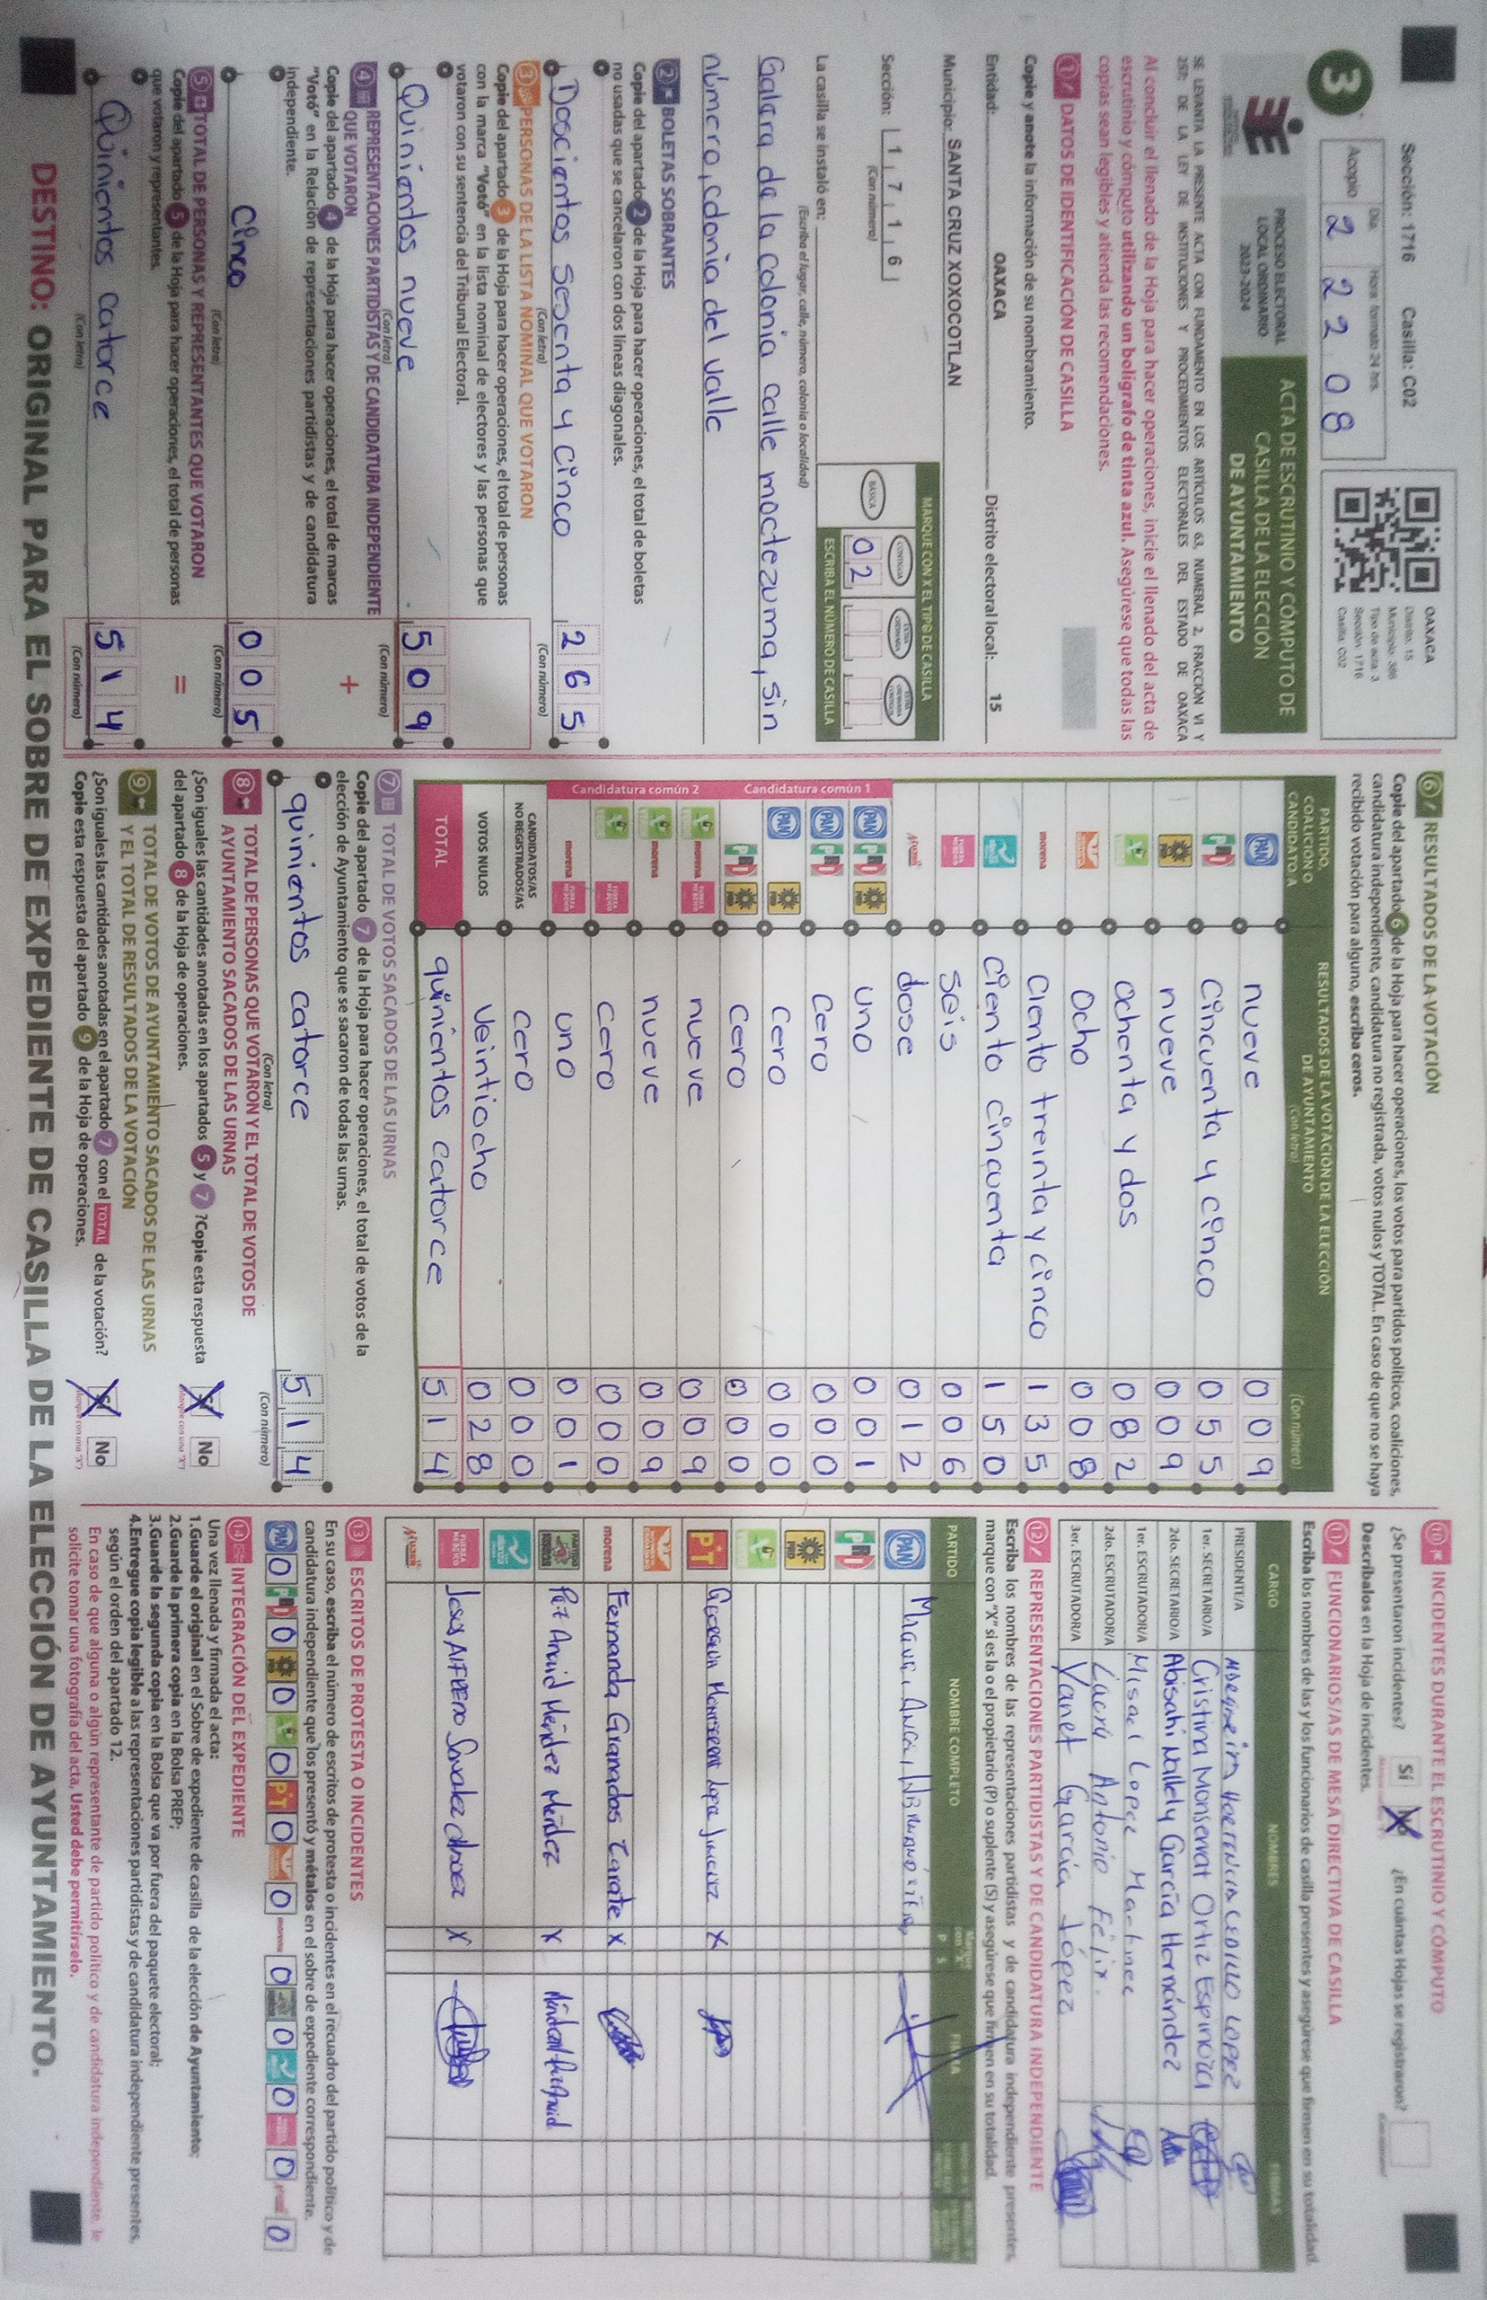 Sección: 1716 Casilla: C02
3
Día Hora: formato 24 hrs.
Acopio 2 22 08
OAXACA
Distrito: 15
Municipio: 386
Tipo de acta: 3
Sección: 1716
Casilla: C02
PROCESO ELECTORAL
LOCAL ORDINARIO
2023-2024
ACTA DE ESCRUTINIO Y CÓMPUTO DE
CASILLA DE LA ELECCIÓN
DE AYUNTAMIENTO
SE LEVANTA LA PRESENTE ACTA CON FUNDAMENTO EN LOS ARTÍCULOS 63, NUMERAL 2, FRACCIÓN VI Y
259; DE LA LEY DE INSTITUCIONES Y PROCEDIMIENTOS ELECTORALES DEL ESTADO DE OAXACA
Al concluir el llenado de la Hoja para hacer operaciones, inicie el llenado del acta de
escrutinio y cómputo utilizando un bolígrafo de tinta azul. Asegúrese que todas las
copias sean legibles y atienda las recomendaciones.
1 DATOS DE IDENTIFICACIÓN DE CASILLA
Copie y anote la información de su nombramiento.
Entidad: OAXACA Distrito electoral local: 15
Municipio: SANTA CRUZ XOXOCOTLAN
Sección: 1 7 1 6
(Con número)
MARQUE CON X EL TIPO DE CASILLA
BÁSICA CONTIGUA
02
ESCRIBA EL NÚMERO DE CASILLA
La casilla se instaló en:
(Escriba el lugar, calle, número, colonia o localidad)
Galera de la colonia calle moctezuma, sin
número, colonia del valle
2 BOLETAS SOBRANTES
Copie del apartado 2 de la Hoja para hacer operaciones, el total de boletas
no usadas que se cancelaron con dos líneas diagonales.
Doscientos sesenta y cinco 265
(Con letra) (Con número)
3 PERSONAS DE LA LISTA NOMINAL QUE VOTARON
Copie del apartado 3 de la Hoja para hacer operaciones, el total de personas
con la marca "Votó" en la lista nominal de electores y las personas que
votaron con su sentencia del Tribunal Electoral.
Quinientos nueve 509
(Con letra) (Con número)
4 REPRESENTACIONES PARTIDISTAS Y DE CANDIDATURA INDEPENDIENTE
QUE VOTARON
Copie del apartado 4 de la Hoja para hacer operaciones, el total de marcas
"Votó" en la Relación de representaciones partidistas y de candidatura
independiente.
+
cinco 005
(Con letra) (Con número)
5 TOTAL DE PERSONAS Y REPRESENTANTES QUE VOTARON
Copie del apartado 5 de la Hoja para hacer operaciones, el total de personas
que votaron y representantes.
=
Quinientos catorce 514
(Con letra) (Con número)
6 RESULTADOS DE LA VOTACIÓN
Copie del apartado 6 de la Hoja para hacer operaciones, los votos para partidos políticos, coaliciones,
candidatura independiente, candidatura no registrada, votos nulos y TOTAL. En caso de que no se haya
recibido votación para alguno, escriba ceros.
PARTIDO, COALICIÓN O CANDIDATO/A
RESULTADOS DE LA VOTACIÓN DE LA ELECCIÓN DE AYUNTAMIENTO
(Con letra) (Con número)
PAN nueve 009
PRI cincuenta y cinco 055
PRD nueve 009
ochenta y dos 082
ocho 008
morena ciento treinta y cinco 135
ciento cincuenta 150
FUERZA MÉXICO seis 006
dose 012
Candidatura común 1
PAN PRI PRD uno 001
PAN PRI cero 000
PAN PRD cero 000
PRI PRD cero 000
Candidatura común 2
morena FUERZA MÉXICO nueve 009
morena nueve 009
FUERZA MÉXICO cero 000
morena FUERZA MÉXICO uno 001
CANDIDATOS/AS NO REGISTRADOS/AS cero 000
VOTOS NULOS veintiocho 028
TOTAL quinientos catorce 514
7 TOTAL DE VOTOS SACADOS DE LAS URNAS
Copie del apartado 7 de la Hoja para hacer operaciones, el total de votos de la
elección de Ayuntamiento que se sacaron de todas las urnas.
quinientos catorce 514
(Con letra) (Con número)
8 TOTAL DE PERSONAS QUE VOTARON Y EL TOTAL DE VOTOS DE
AYUNTAMIENTO SACADOS DE LAS URNAS
¿Son iguales las cantidades anotadas en los apartados 5 y 7 ? Copie esta respuesta
del apartado 8 de la Hoja de operaciones.
Sí No
9 TOTAL DE VOTOS DE AYUNTAMIENTO SACADOS DE LAS URNAS
Y EL TOTAL DE RESULTADOS DE LA VOTACIÓN
¿Son iguales las cantidades anotadas en el apartado 7 con el TOTAL de la votación?
Copie esta respuesta del apartado 9 de la Hoja de operaciones.
Sí No
10 INCIDENTES DURANTE EL ESCRUTINIO Y CÓMPUTO
¿Se presentaron incidentes? Sí No ¿En cuántas Hojas se registraron?
Descríbalos en la Hoja de incidentes.
11 FUNCIONARIOS/AS DE MESA DIRECTIVA DE CASILLA
Escriba los nombres de las y los funcionarios de casilla presentes y asegúrese que firmen en su totalidad.
CARGO NOMBRES FIRMAS
PRESIDENTE/A
1er. SECRETARIO/A Cristina Monserrat Ortiz Espinoza
2do. SECRETARIO/A Abisahi Nallely García Hernández
1er. ESCRUTADOR/A Misael Lopez Martinez
2do. ESCRUTADOR/A Laura Antonio Félix.
3er. ESCRUTADOR/A Yanet García López
12 REPRESENTACIONES PARTIDISTAS Y DE CANDIDATURA INDEPENDIENTE
Escriba los nombres de las representaciones partidistas y de candidatura independiente presentes,
marque con "X" si es la o el propietario (P) o suplente (S) y asegúrese que firmen en su totalidad.
PARTIDO NOMBRE COMPLETO P S FIRMA
PAN
PRI
PRD
PT
morena Fernanda Granados Zarate X
Paz Anaid Méndez Méndez X
FUERZA MÉXICO X
13 ESCRITOS DE PROTESTA O INCIDENTES
En su caso, escriba el número de escritos de protesta o incidentes en el recuadro del partido político y de
candidatura independiente que los presentó y métalos en el sobre de expediente correspondiente.
PAN 0 PRI 0 PRD 0 0 PT 0 0 morena 0 0 0 0 0
14 INTEGRACIÓN DEL EXPEDIENTE
Una vez llenada y firmada el acta:
1. Guarde el original en el Sobre de expediente de casilla de la elección de Ayuntamiento;
2. Guarde la primera copia en la Bolsa PREP;
3. Guarde la segunda copia en la Bolsa que va por fuera del paquete electoral;
4. Entregue copia legible a las representaciones partidistas y de candidatura independiente presentes,
según el orden del apartado 12.
En caso de que alguna o algún representante de partido político y de candidatura independiente, le
solicite tomar una fotografía del acta, Usted debe permitírselo.
DESTINO: ORIGINAL PARA EL SOBRE DE EXPEDIENTE DE CASILLA DE LA ELECCIÓN DE AYUNTAMIENTO.